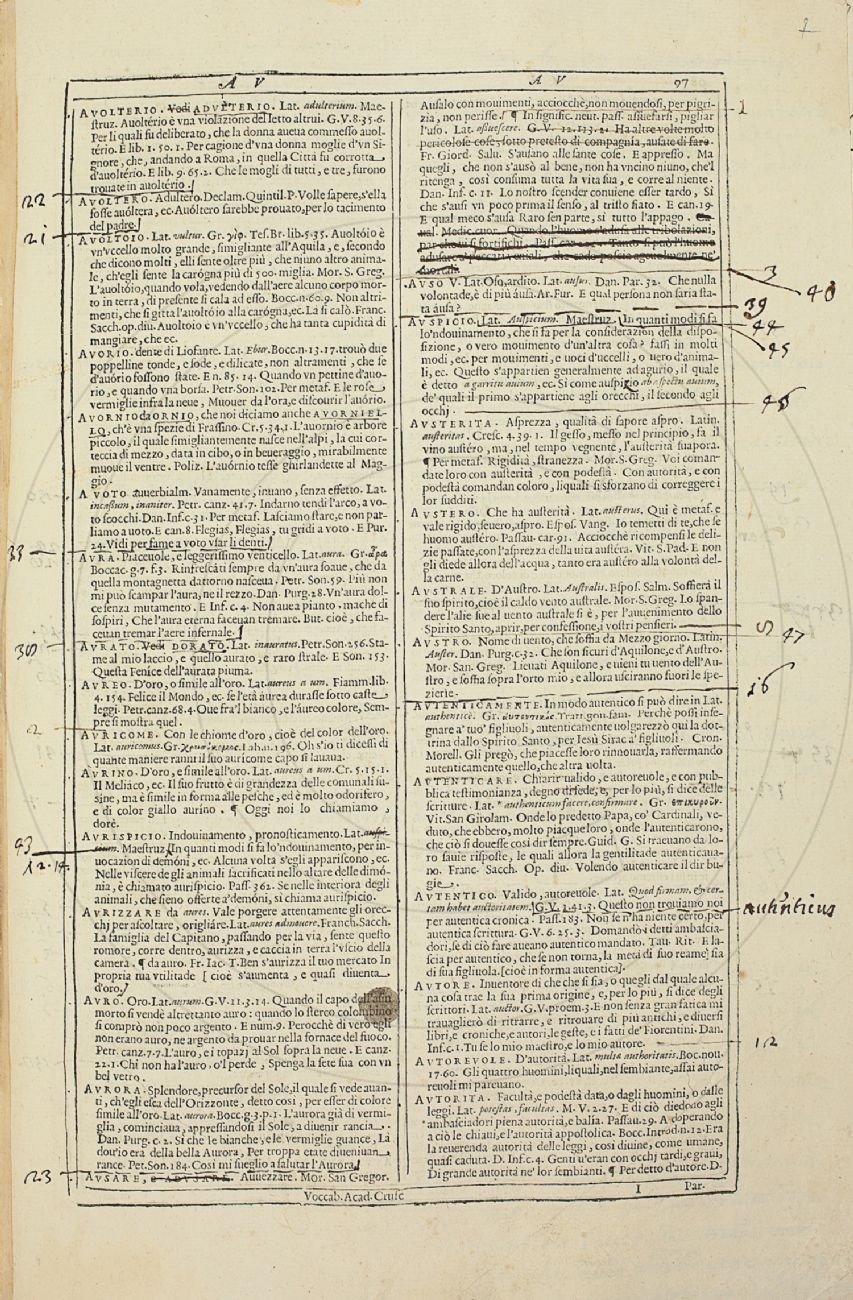 A V
A V 97
AVOLTERIO. Vedi ADVLTERIO. Lat. adulterium. Mae-
struz. Auoltério è vna violazione del letto altrui. G.V.8.35.6.
Per li quali fu deliberato, che la donna aueua commesso auol-
tério. E lib. 1. 50. 1. Per cagione d'vna donna moglie d'vn Si-
gnore, che, andando a Roma, in quella Città fu corrotta
d'auoltério. E lib. 9. 65. 2. Che le mogli di tutti, e tre, furono
trouate in auoltério.
AVOLTERO. Adultero. Declam. Quintil. P. Volle sapere, s'ella
fosse auóltera, ec. Auóltero sarebbe prouato, per lo tacimento
del padre.
AVOLTOIO. Lat. vultur. Gr. γὺψ. Tes. Br. lib. 5. 35. Auoltóio è
vn'vccello molto grande, simigliante all'Aquila, e, secondo
che dicono molti, elli sente oltre più, che niuno altro anima-
le, ch'egli sente la carógna più di 500. miglia. Mor. S. Greg.
L'auoltóio, quando vola, vedendo dall'aere alcuno corpo mor-
to in terra, di presente si cala ad esso. Bocc. n. 60. 9. Non altri-
menti, che si gitta l'auoltóio alla carógna, ec. La si calò. Franc.
Sacch. op. diu. Auoltoio è vn'vccello, che ha tanta cupidità di
mangiare, che ec.
AVORIO. dente di Liofante. Lat. Ebur. Bocc. n. 13. 17. trouò due
poppelline tonde, e sode, e dilicate, non altramenti, che se
d'auório fossono state. E n. 85. 14. Quando vn pettine d'auo-
rio, e quando vna borsa. Petr. Son. 102. Per metaf. E le rose
vermiglie infra la neue, Muouer da l'ora, e discourir l'auório.
AVORNIO da ORNIO, che noi diciamo anche AVORNIEL-
LO, ch'è vna spezie di Frassino. Cr. 5. 34. 1. L'auornio è arbore
piccolo, il quale simigliantemente nasce nell'alpi, la cui cor-
teccia di mezzo, data in cibo, o in beueraggio, mirabilmente
muoue il ventre. Poliz. L'auórnio tesse ghirlandette al Mag-
gio.
A VOTO auuerbialm. Vanamente, inuano, senza effetto. Lat.
incassum, inaniter. Petr. canz. 41. 7. Indarno tendi l'arco, a vo-
to scocchi. Dan. Inf. c. 31. Per metaf. Lasciamo stare, e non par-
liamo a uoto. E can. 8. Flegias, Flegias, tu gridi a voto. E Pur.
24. Vidi per fame a voto vsar li denti.
AVRA. Piaceuole, e leggerissimo venticello. Lat. aura. Gr. αὔρα
Boccac. g. 7. f. 3. Rinfrescati sempre da vn'aura soaue, che da
quella montagnetta dattorno nasceua. Petr. Son. 59. Più non
mi può scampar l'aura, ne il rezzo. Dan. Purg. 28. Vn'aura dol-
ce senza mutamento. E Inf. c. 4. Non auea pianto. mache di
sospiri, Che l'aura eterna faceuan tremare. But. cioè, che fa-
ceuan tremar l'aere infernale.
AVRATO. Vedi DORATO. Lat. inauratus. Petr. Son. 256. Sta-
me al mio laccio, e quello aurato, e raro strale. E Son. 153.
Questa Fenice dell'aurata piuma.
AVREO. D'oro, o simile all'oro. Lat. aureus a um. Fiamm. lib.
4. 154. Felice il Mondo, ec. se l'età áurea durasse sotto caste
leggi. Petr. canz. 68. 4. Que fra'l bianco, e l'áureo colore, Sem-
pre si mostra quel.
AVRICOME. Con le chiome d'oro, cioè del color dell'oro.
quante maniere ranni il suo auricome capo si lauaua.
AVRINO. D'oro, e simile all'oro. Lat. aureus a um. Cr. 5. 15. 1.
Il Meliáco, ec. Il suo frutto è di grandezza delle comunali su-
sine, ma è simile in forma alle pesche, ed è molto odorifero,
e di color giallo aurino. ¶ Oggi noi lo chiamiamo,
dorè.
AVRISPICIO. Indouinamento, pronosticamento. Lat. auspi-
cium. Maestruz. In quanti modi si fa lo'ndouinamento, per in-
uocazion di demóni, ec. Alcuna volta s'egli appariscono, ec.
Nelle viscere de gli animali sacrificati nello altare delle dimó-
nia, è chiamato aurispicio. Pass. 362. Se nelle interiora degli
animali, che sieno offerte a'demóni, si chiama aurispicio.
AVRIZZARE da aures. Vale porgere attentamente gli orec-
chj per ascoltare, origliáre. Lat. aures admouere. Franch. Sacch.
La famiglia del Capitano, passando per la via, sente questo
romore, corre dentro, aurizza, e caccia in terra l'vscio della
camera. ¶ da auro. Fr. Iac. T. Ben s'aurizza il tuo mercato In
propria tua vtilitade [cioè s'aumenta, e quasi diuenta
d'oro.]
AVRO. Oro. Lat. aurum. G. V. 11. 3. 14. Quando il capo dell'asin
morto si vendè altrettanto auro: quando lo sterco colombino
si comprò non poco argento. E num. 9. Perocchè di vero egli
non erano auro, ne argento da prouar nella fornace del fuoco.
Petr. canz. 7. 7. L'auro, e i topazj al Sol sopra la neue. E canz.
22. 1. Chi non ha l'auro, o'l perde, Spenga la sete sua con vn
bel vetro.
AVRORA. Splendore, precursor del Sole, il quale si vede auan-
ti, ch'egli esca dell'Orizzonte, detto così, per esser di colore
simile all'oro. Lat. aurora. Bocc. g. 3. p. 1. L'aurora già di vermi-
glia, cominciaua, appressandosi il Sole, a diuenir rancia.
Dan. Purg. c. 2. Si che le bianche, e le vermiglie guance, Là
dou'io era della bella Aurora, Per troppa etate diueniuan
rance. Pet. Son. 184. Così mi sueglio a salutar l'Aurora.
AVSARE, e ADVSARE. Auuezzare. Mor. San Gregor.
Ausalo con mouimenti, acciocchè, non mouendosi, per pigri-
zia, non perisse. ¶ In signific. neut. pass. assuefarsi, pigliar
l'uso. Lat. assuescere. G. V. 12. 113. 2. Ha altre volte molto
pericolose cose, sotto pretesto di compagnia, ausate di fare.
Fr. Giord. Salu. S'ausano alle sante cose. E appresso. Ma
quegli, che non s'ausò al bene, non ha vncino niuno, che'l
ritenga, così consuma tutta la vita sua, e corre al niente.
Dan. Inf. c. 11. Lo nostro scender conuiene esser tardo, Sì
che s'ausi vn poco prima il senso, al tristo fiato. E can. 19.
E qual meco s'ausa Raro sen parte, sì tutto l'appago.
AVSO V. Lat. Oso, ardito. Lat. ausus. Dan. Par. 32. Che nulla
volontade, è di più áusa. Ar. Fur. E qual persona non saria sta-
ta áusa?
AVSPICIO. Lat. Auspicium. Maestruz. In quanti modi si fa
lo'ndouinamento, che si fa per la considerazion della dispo-
sizione, o vero mouimento d'un'altra cosa? fassi in molti
modi, ec. per mouimenti, e uoci d'uccelli, o uero d'anima-
li, ec. Questo s'appartien generalmente ad agurio, il quale
è detto a garritu auium, ec. Si come auspigio ab aspectu auium,
de' quali il primo s'appartiene agli orecchi, il secondo agli
occhj.
AVSTERITA. Asprezza, qualità di sapore aspro. Latin.
austeritas. Cresc. 4. 39. 1. Il gesso, messo nel principio, fa il
vino austéro, ma, nel tempo vegnente, l'austerità suapora.
¶ Per metaf. Rigidità, stranezza. Mor. S. Greg. Voi coman-
date loro con austerità, e con podestà. Con autorità, e con
podestà comandan coloro, liquali si sforzano di correggere i
lor sudditi.
AVSTERO. Che ha austerità. Lat. austerus. Qui è metaf. e
vale rigido, seuero, aspro. Espos. Vang. Io temetti di te, che se
huomo austéro. Passau. car. 91. Acciocchè ricompensi le deli-
zie passate, con l'asprezza della uita austéra. Vit. S. Pad. E non
gli diede allora dell'acqua, tanto era austéro alla volontà del-
la carne.
AVSTRALE. D'Austro. Lat. Australis. Espos. Salm. Soffierà il
suo spirito, cioè il caldo vento australe. Mor. S. Greg. Lo span-
dere l'alie sue al uento australe si è, per l'auuenimento dello
Spirito Santo, aprir, per confessione, i vostri pensieri.
AVSTRO. Nome di uento, che soffia da Mezzo giorno. Latin.
Auster. Dan. Purg. c. 32. Che son sicuri d'Aquilone, e d'Austro.
Mor. San Greg. Lieuati Aquilone, e uieni tu uento dell'Au-
stro, e soffia sopra l'orto mio, e allora usciranno fuori le spe-
zierie.
AVTENTICAMENTE. In modo autentico si può dire in Lat.
gnare a' tuo' figliuoli, autenticamente uolgarezzò qui la dot-
trina dallo Spirito Santo, per Iesù Sirac a' figliuoli. Cron.
Morell. Gli pregò, che piacesse loro rinnouarla, raffermando
autenticamente quello, che altra uolta.
AVTENTICARE. Chiarir ualido, e autoreuole, e con pub-
blica testimonianza, degno di fede; e, per lo più, si dice delle
scritture. Lat. authenticum facere, confirmare. Gr. ἐπικυροῦν.
Vit. San Girolam. Onde lo predetto Papa, co' Cardinali, ve-
duto, che ebbero, molto piacque loro, onde l'autenticarono,
che ciò si douesse così dir sempre. Guid. G. Si tracuano da lo-
ro sauie risposte, le quali allora la gentilitade autenticaua-
no. Franc. Sacch. Op. diu. Volendo autenticare il dir bu-
gie.
AVTENTICO. Valido, autoreuole. Lat. Quod firmam, & cer-
tam habet auctoritatem. G. V. 2. 41. 3. Questo non trouiamo noi
per autentica cronica. Pass. 183. Non se n'ha niente certo, per
autentica scrittura. G. V. 6. 25. 3. Domandò i detti ambascia-
dori, se di ciò fare aueano autentico mandato. Tau. Rit. E la-
scia per autentico, che se non torna, la metà di suo reame sia
di sua figliuola. [cioè in forma autentica].
AVTORE. Inuentore di che che si sia, o quegli dal quale alcu-
na cosa trae la sua prima origine, e, per lo più, si dice degli
scrittori. Lat. auctor. G. V. proem. 3. E non senza gran fatica mi
trauaglierò di ritrarre, e ritrouare di più antichi, e diuersi
libri, e croniche, e autori, le geste, e i fatti de' Fiorentini. Dan.
Inf. c. 1. Tu se lo mio maestro, e lo mio autore.
AVTOREVOLE. D'autorità. Lat. multa authoritatis. Boc. nou.
17. 60. Gli quattro huomini, liquali, nel sembiante, assai auto-
reuoli mi pareuano.
AVTORITA. Faculta, e podestà data, o dagli huomini, o dalle
leggi. Lat. potestas, facultas. M. V. 2. 27. E di ciò diedono agli
ambasciadori piena autorità, e balia. Passau. 29. A doperando
a ciò le chiaui, e l'autorità appostolica. Bocc. Introd. n. 12. Era
la reuerenda autorità delle leggi, così diuine, come umane,
quasi caduta. D. Inf. c. 4. Genti u'eran con occhj tardi, e graui,
Di grande autorità ne' lor sembianti. ¶ Per detto d'autore. D.
Voccab. Acad. Crusc I Par-
22
21
33
30
2
93
12.14
23
1
3
40
39
44
45
46
47
16
autenticus
12